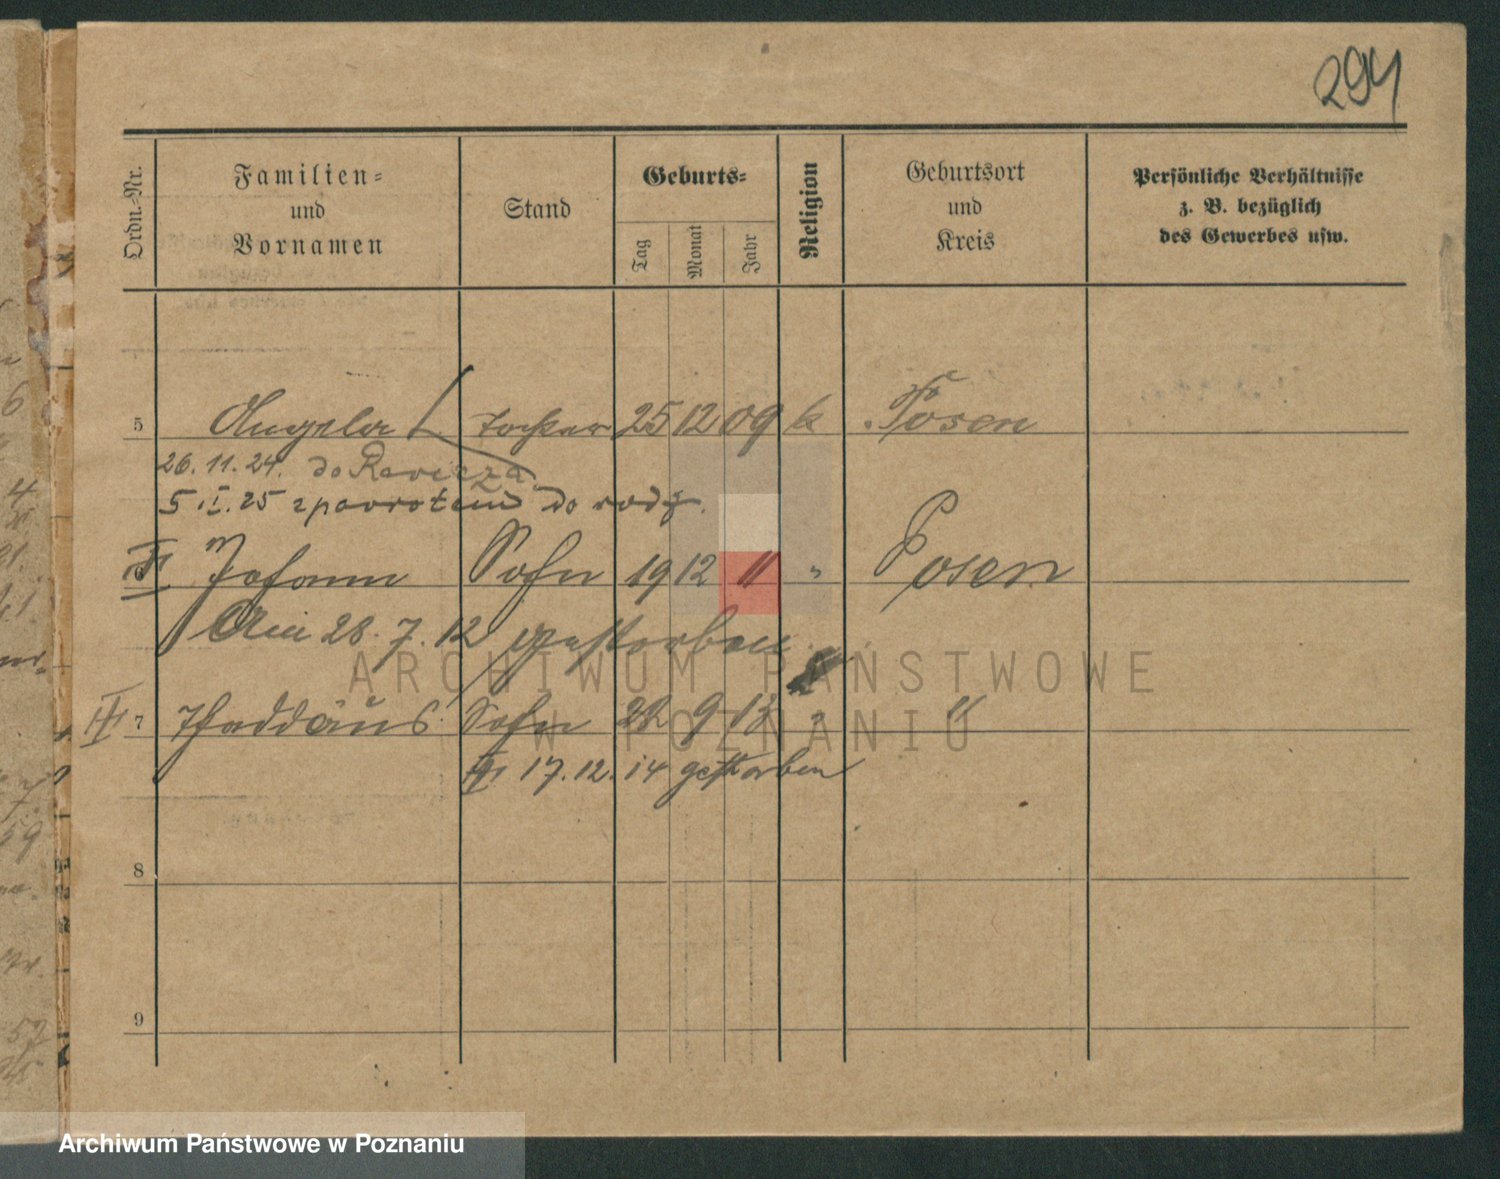 294
Ordn.-Nr. Familien- und Vornamen Stand Geburts- Tag Monat Jahr Religion Geburtsort und Kreis Persönliche Verhältnisse z. B. bezüglich des Gewerbes usw.
5 Angela Tochter 25 12 09 k Posen
26.11.24. do Rawicza
5.I.25 z powrotem do rodz.
6 Johann Sohn 19 12 11 " Posen
Am 28.7.12 gestorben
7 Thaddäus Sohn 22 9 13 " "
17.12.14 gestorben
8
9
ARCHIWUM PAŃSTWOWE
W POZNANIU
Archiwum Państwowe w Poznaniu